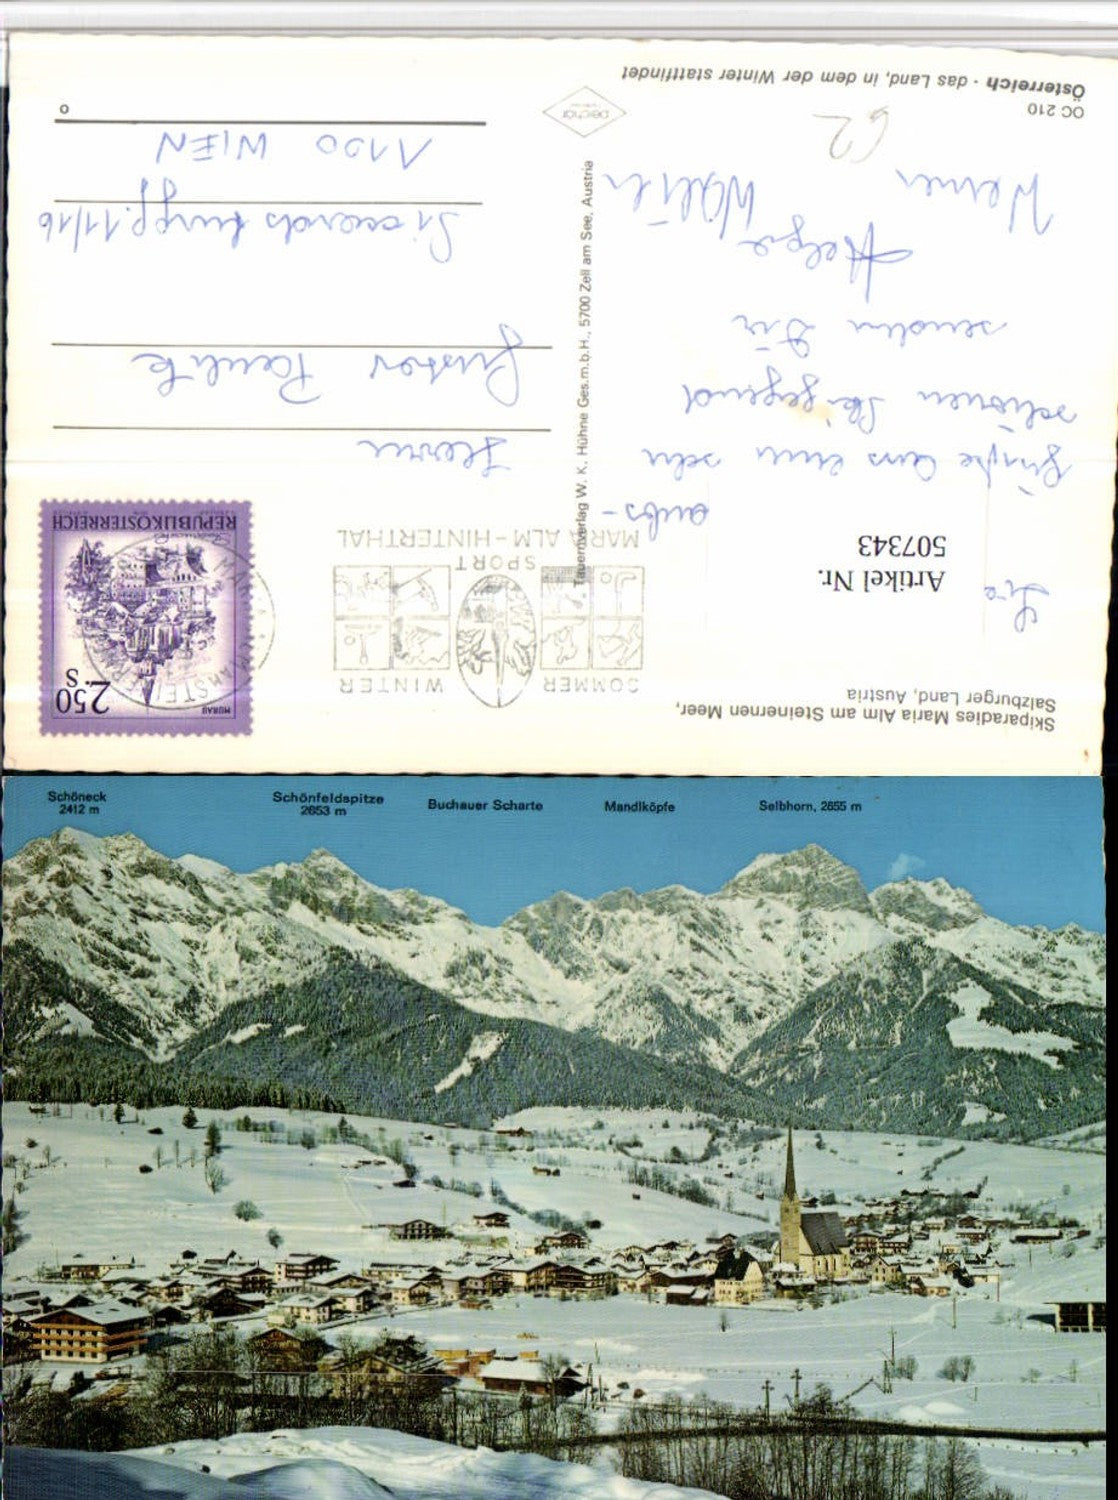 Skiparadies Maria Alm am Steinernen Meer,
Salzburger Land, Austria
Artikel Nr.
507343
Grüße aus einer sehr
schönen Skigegend
senden Dir
Helga Walter
Werner
62
OC 210
Österreich - das Land, in dem der Winter stattfindet
Tauernverlag W. K. Hühne Ges.m.b.H., 5700 Zell am See, Austria
SOMMER
WINTER
SPORT
MARIA ALM-HINTERTHAL
MURAU
2.50
S
REPUBLIK ÖSTERREICH
Herrn
Gustav
1100 WIEN
Schöneck
2412 m
Schönfeldspitze
2653 m
Buchauer Scharte
Mandlköpfe
Selbhorn, 2655 m